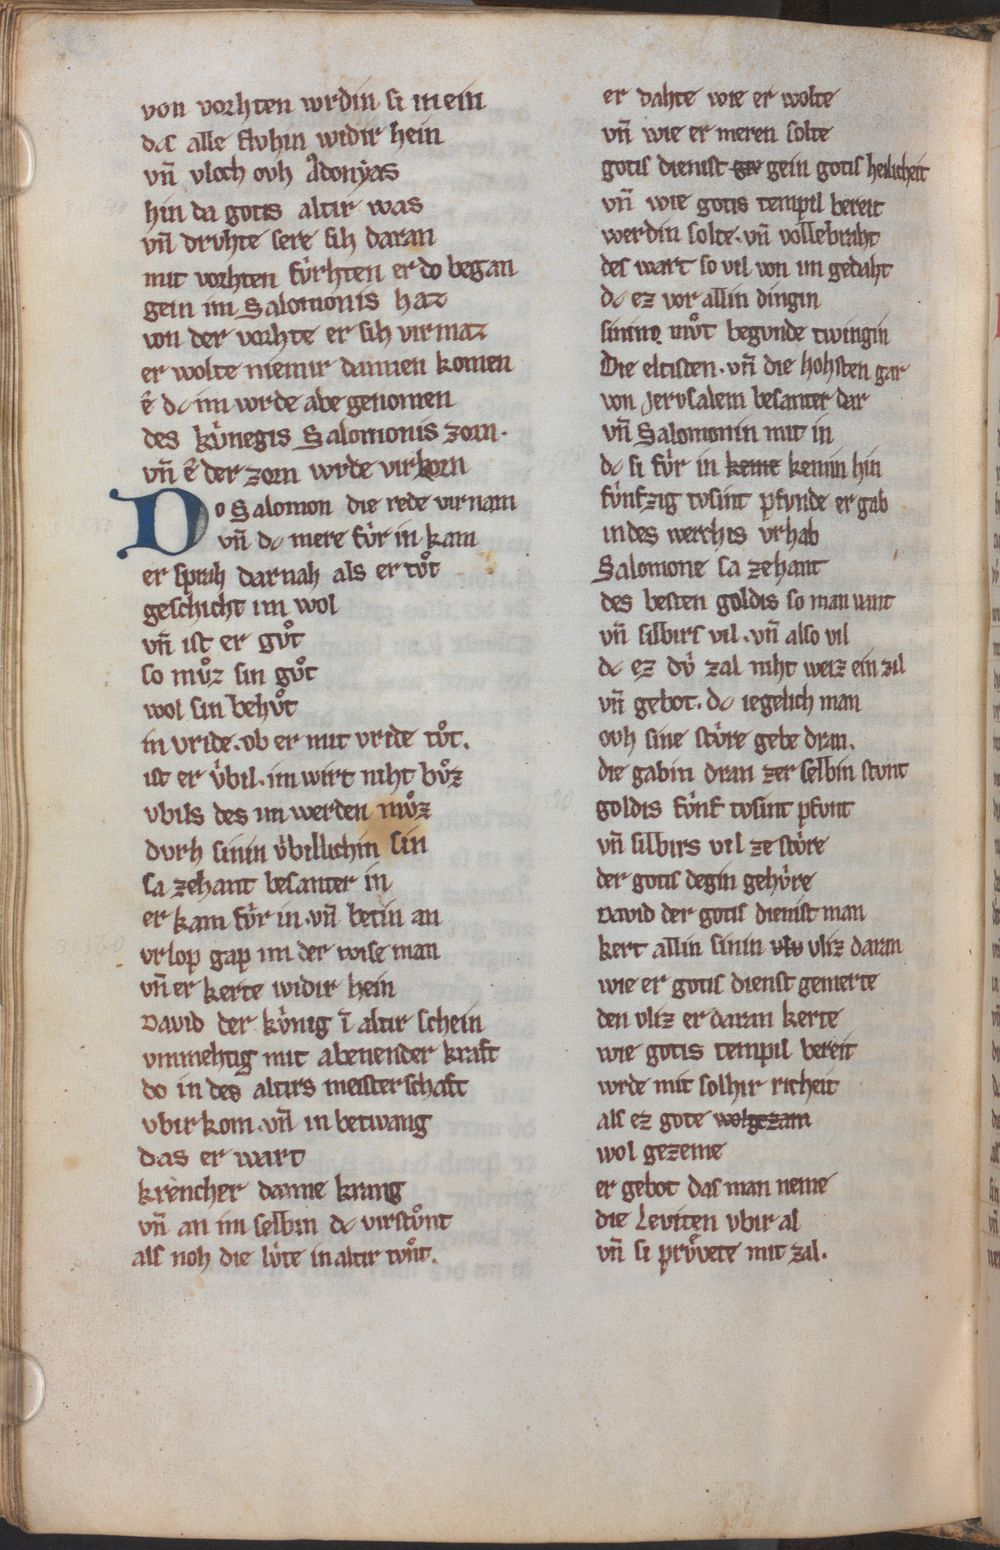 von vorhten wrdin si in ein
das alle fluhin widir hein
vn̄ vloch ovh Adonẏas
hin da gotis altir was
vn̄ druhte sere sih daran
mit vorhten fv̊rhten er do began
gein im Salomonis haz
von der vorhte er sih virmaz
er wolte niemir dannen komen
ê dc im wrde abe genomen
des kv̊negis Salomonis zorn.
vn̄ ê der zorn wrde virkorn
Do Salomon die rede virnam
vn̄ dc mere fv̊r in kam
er sprah darnah als er tv̊t
geschicht im wol
vn̄ ist er gv̊t
so mv̊z sin gv̊t
wol sin behv̊t
in vride. ob er mit vride tv̊t.
ist er v̊bil. im wirt niht bv̊z
vbils des im werden mv̊z
durh sinin v̊billichin sin
sa zehant besanter in
er kam fv̊r in. vn̄ betin an
vrlop gap im der wise man
vn̄ er kerte widir hein
David der kv̊nig ī altir schein
vnmehtig mit abenender kraft
do in des altirs meisterschaft
vbir kom. vn̄ in betwang
das er wart
krencher danne krang
vn̄ an im selbin dc virstv̊nt
als noh die lv̊te in altir tv̊nt.
er dahte wie er wolte
vn̄ wie er meren solte
gotis dienist gein gotis heilicheit
vn̄ wie gotis tempil bereit
werdin solte. vn̄ vollebraht
des wart so vil von im gedaht
dc ez vor allin dingin
sinine mv̊t begunde twingin
Die eltisten. vn̄ die hohsten gar
von Jerusalem besanter dar
vn̄ Salomonin mit in
dc si fv̊r in keine kemin hin
fv̊nfzig tusint pfunde er gab
in des werchis vrhab
Salomone sa zehant
des besten goldis so man vant
vn̄ silbirs vil. vn̄ also vil
dc ez dv̊ zal niht weiz ein zil
vn̄ gebot. dc iegelich man
ovh sine stv̊re gebe dran.
die gabin dran zer selbin stunt
goldis fv̊nf tusint pfunt
vn̄ silbirs vil ze stv̊re
der gotis degin gehv̊re
David der gotis dienist man
kert allin sinin vliz daran
wie er gotis dienst gemerte
den vliz er daran kerte
wie gotis tempil bereit
wrde mit solhir richeit
als ez gote wolgezam
wol gezeme
er gebot das man neme
die Leviten vbir al
vn̄ si prv̊vete mit zal.